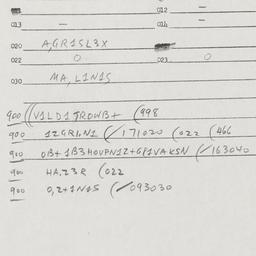 012 —
013 — 014 —
020 A,GR1SL3X
022 0 023 0
030 MA, L1N1S
900 ((V1LD1JROWB+ (998
900 1ZGR1,N1 (/171020 (022 (466
900 0B+ 1B3HOVPN1Z+GP1VAKSN (/163040
900 HA,Z3R (022
900 0,2+1N1S (/093030